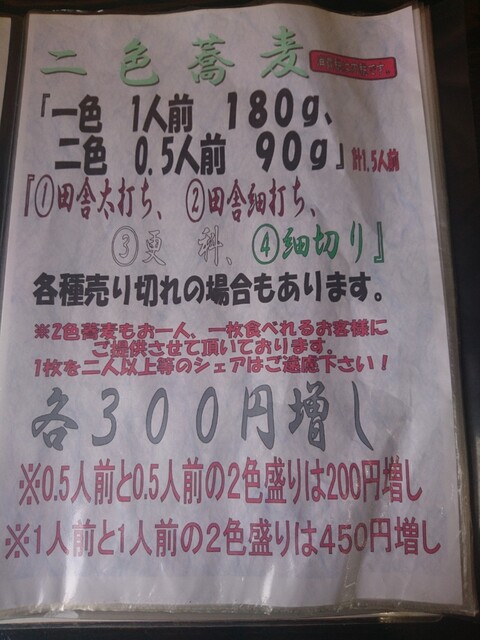 二色蕎麦
『一色 1人前 180g、
二色 0.5人前 90g』計1.5人前
『①田舎太打ち、 ②田舎細打ち、
③更 科、 ④細切り』
各種売り切れの場合もあります。
※2色蕎麦もお一人、一枚食べれるお客様に
ご提供させて頂いております。
1枚を二人以上等のシェアはご遠慮下さい!
各300円増し
※0.5人前と0.5人前の2色盛りは200円増し
※1人前と1人前の2色盛りは450円増し